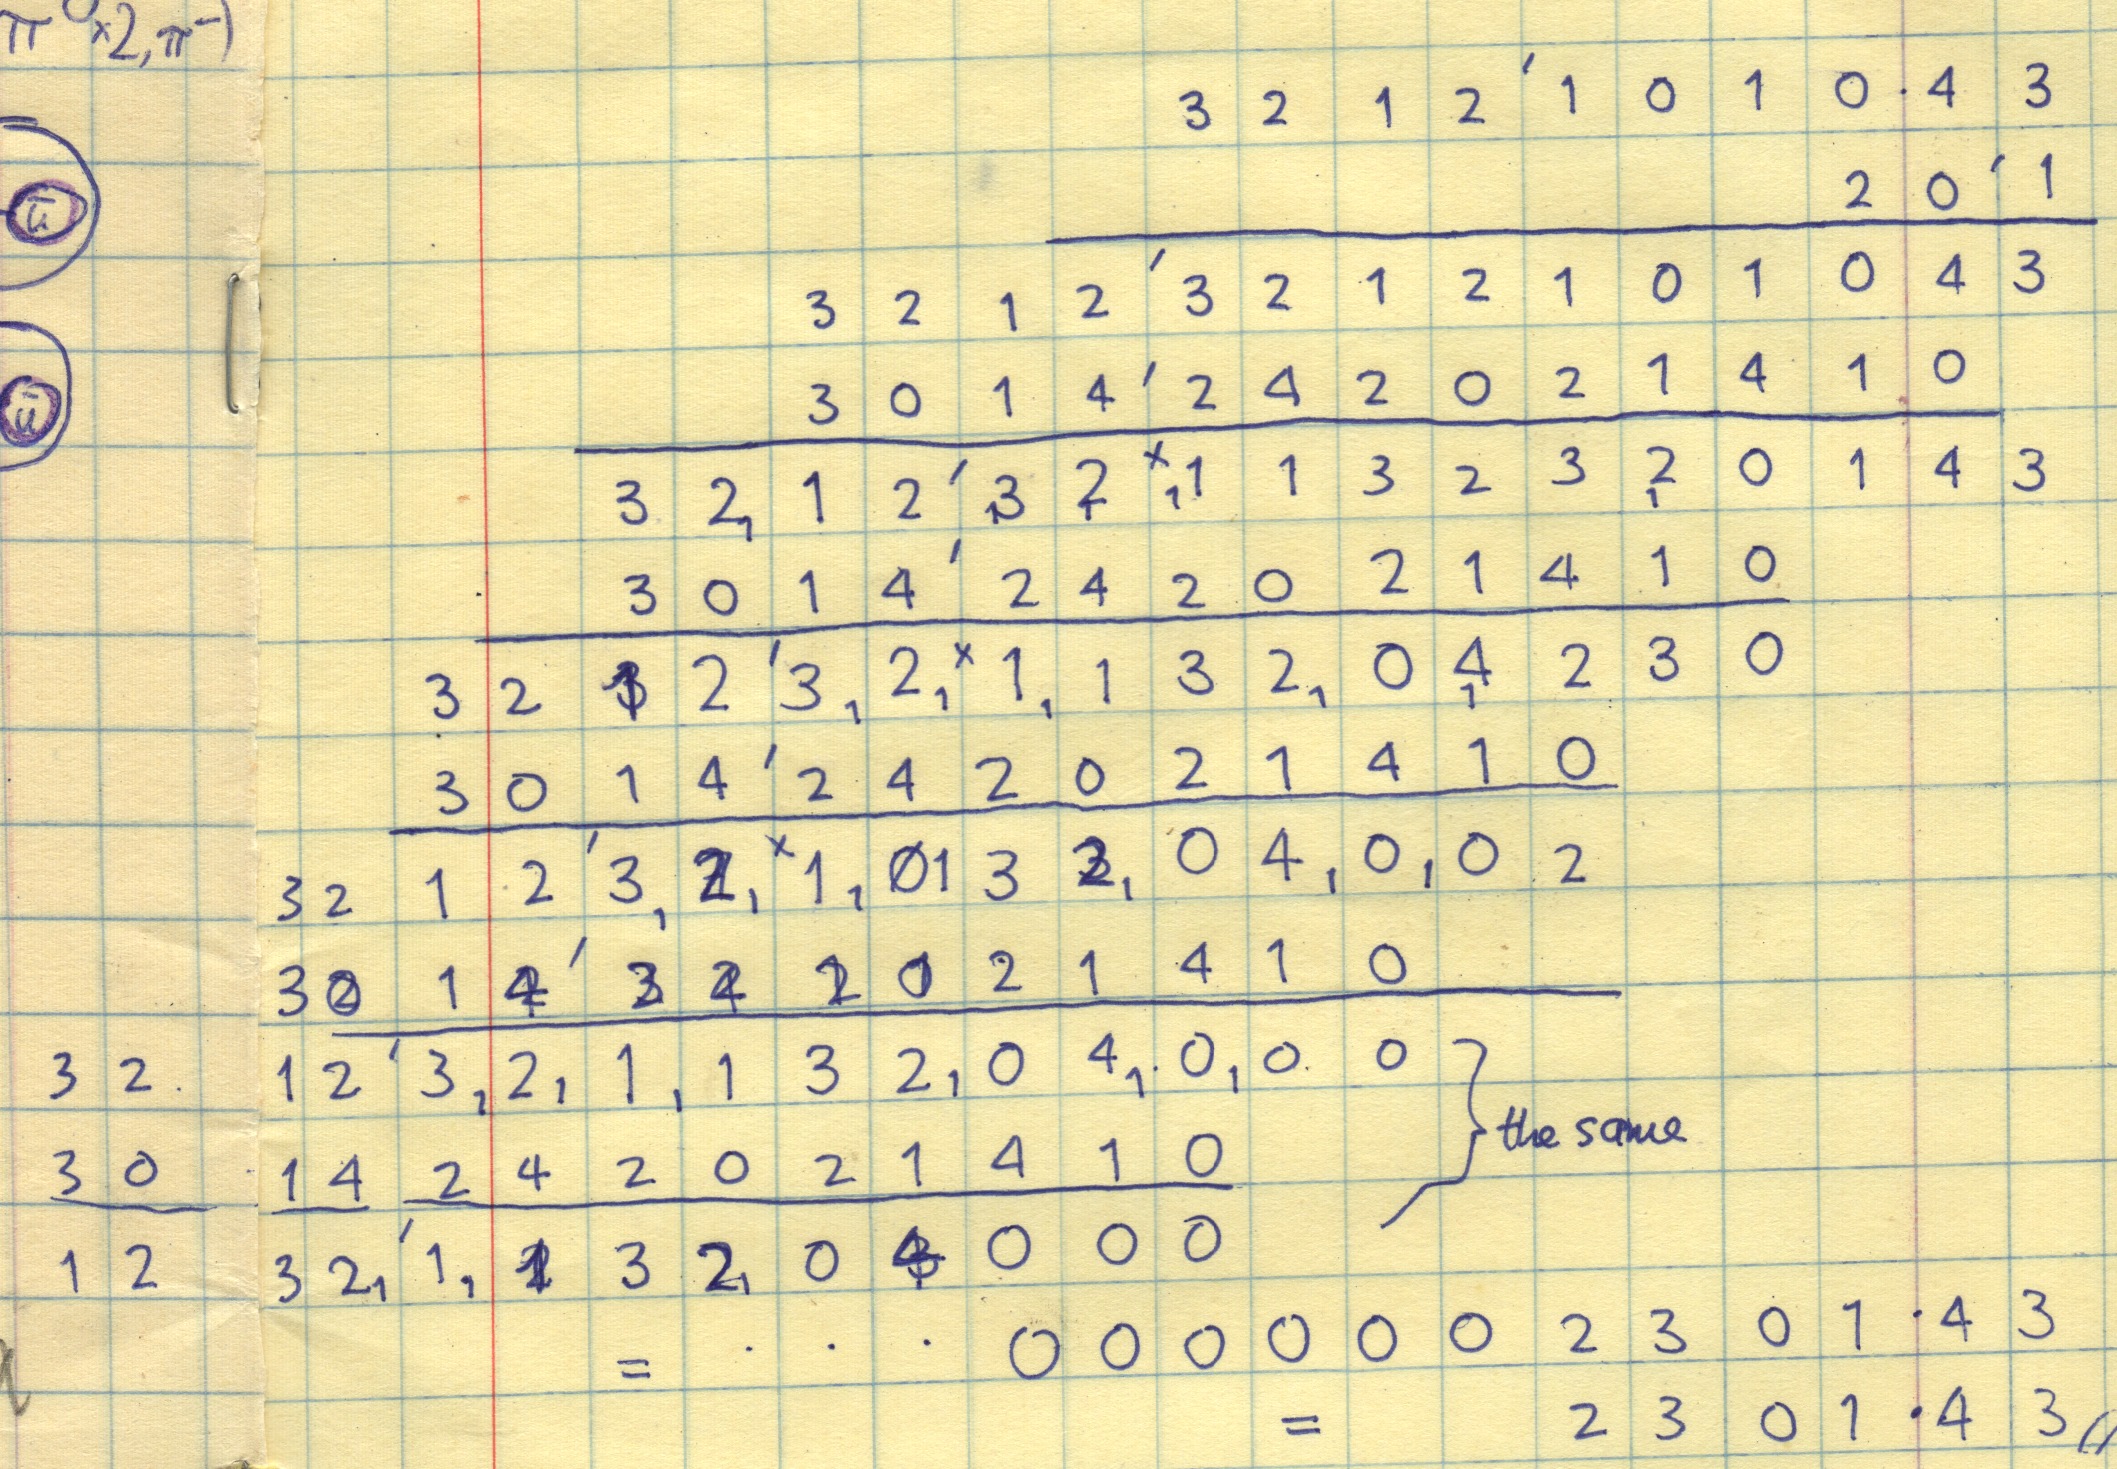 π⁰×2, π⁻)
3 2 1 2 ' 1 0 1 0 · 4 3
ū
2 0 ' 1
3 2 1 2 ' 3 2 1 2 1 0 1 0 4 3
ū
3 0 1 4 ' 2 4 2 0 2 1 4 1 0
3 2, 1 2 ' ,3 2, × ,1 1 3 2 3 2, 0 1 4 3
3 0 1 4 ' 2 4 2 0 2 1 4 1 0
3 2 1 2 ' 3, 2, × 1, 1 3 2, 0 4, 2 3 0
3 0 1 4 ' 2 4 2 0 2 1 4 1 0
3 2 1 2 ' 3, 2, × 1, 0 1 3 2, 0 4, 0, 0 2
3 0 1 4 ' 2 4 2 0 2 1 4 1 0
3 2 . 1 2 ' 3, 2, 1, 1 3 2, 0 4, . 0, 0 . 0
the same
3 0 1 4 2 4 2 0 2 1 4 1 0
1 2 3 2, ' 1, 1 3 2, 0 4 0 0 0
= · · · 0 0 0 0 0 0 2 3 0 1 · 4 3
= 2 3 0 1 · 4 3